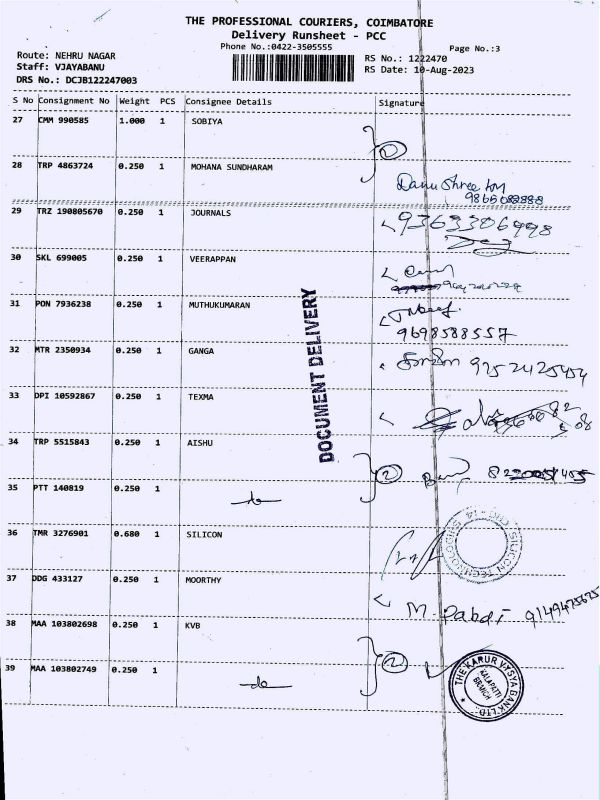 THE PROFESSIONAL COURIERS, COIMBATORE
Delivery Runsheet - PCC
Phone No.:0422-3505555
Page No.:3
Route: NEHRU NAGAR
Staff: VJAYABANU
DRS No.: DCJB122247003
RS No.: 1222470
RS Date: 10-Aug-2023
S No Consignment No Weight PCS Consignee Details Signature
27 CMM 990585 1.000 1 SOBIYA
2
28 TRP 4863724 0.250 1 MOHANA SUNDHARAM
Danu Shree
29 TRZ 190805670 0.250 1 JOURNALS
9363306998
30 SKL 699005 0.250 1 VEERAPPAN
31 PON 7936238 0.250 1 MUTHUKUMARAN
9698588557
32 MTR 2350934 0.250 1 GANGA
9252425454
33 DPI 10592867 0.250 1 TEXMA
34 TRP 5515843 0.250 1 AISHU
2
35 PTT 140819 0.250 1
do
36 TMR 3276901 0.680 1 SILICON
SILICON TECHNOLOGIES
37 DDG 433127 0.250 1 MOORTHY
M. Pabdi 9149475625
38 MAA 103802698 0.250 1 KVB
2
39 MAA 103802749 0.250 1
do
THE KARUR VYSYA BANK LTD.
KALAPATTI
BRANCH
DOCUMENT DELIVERY